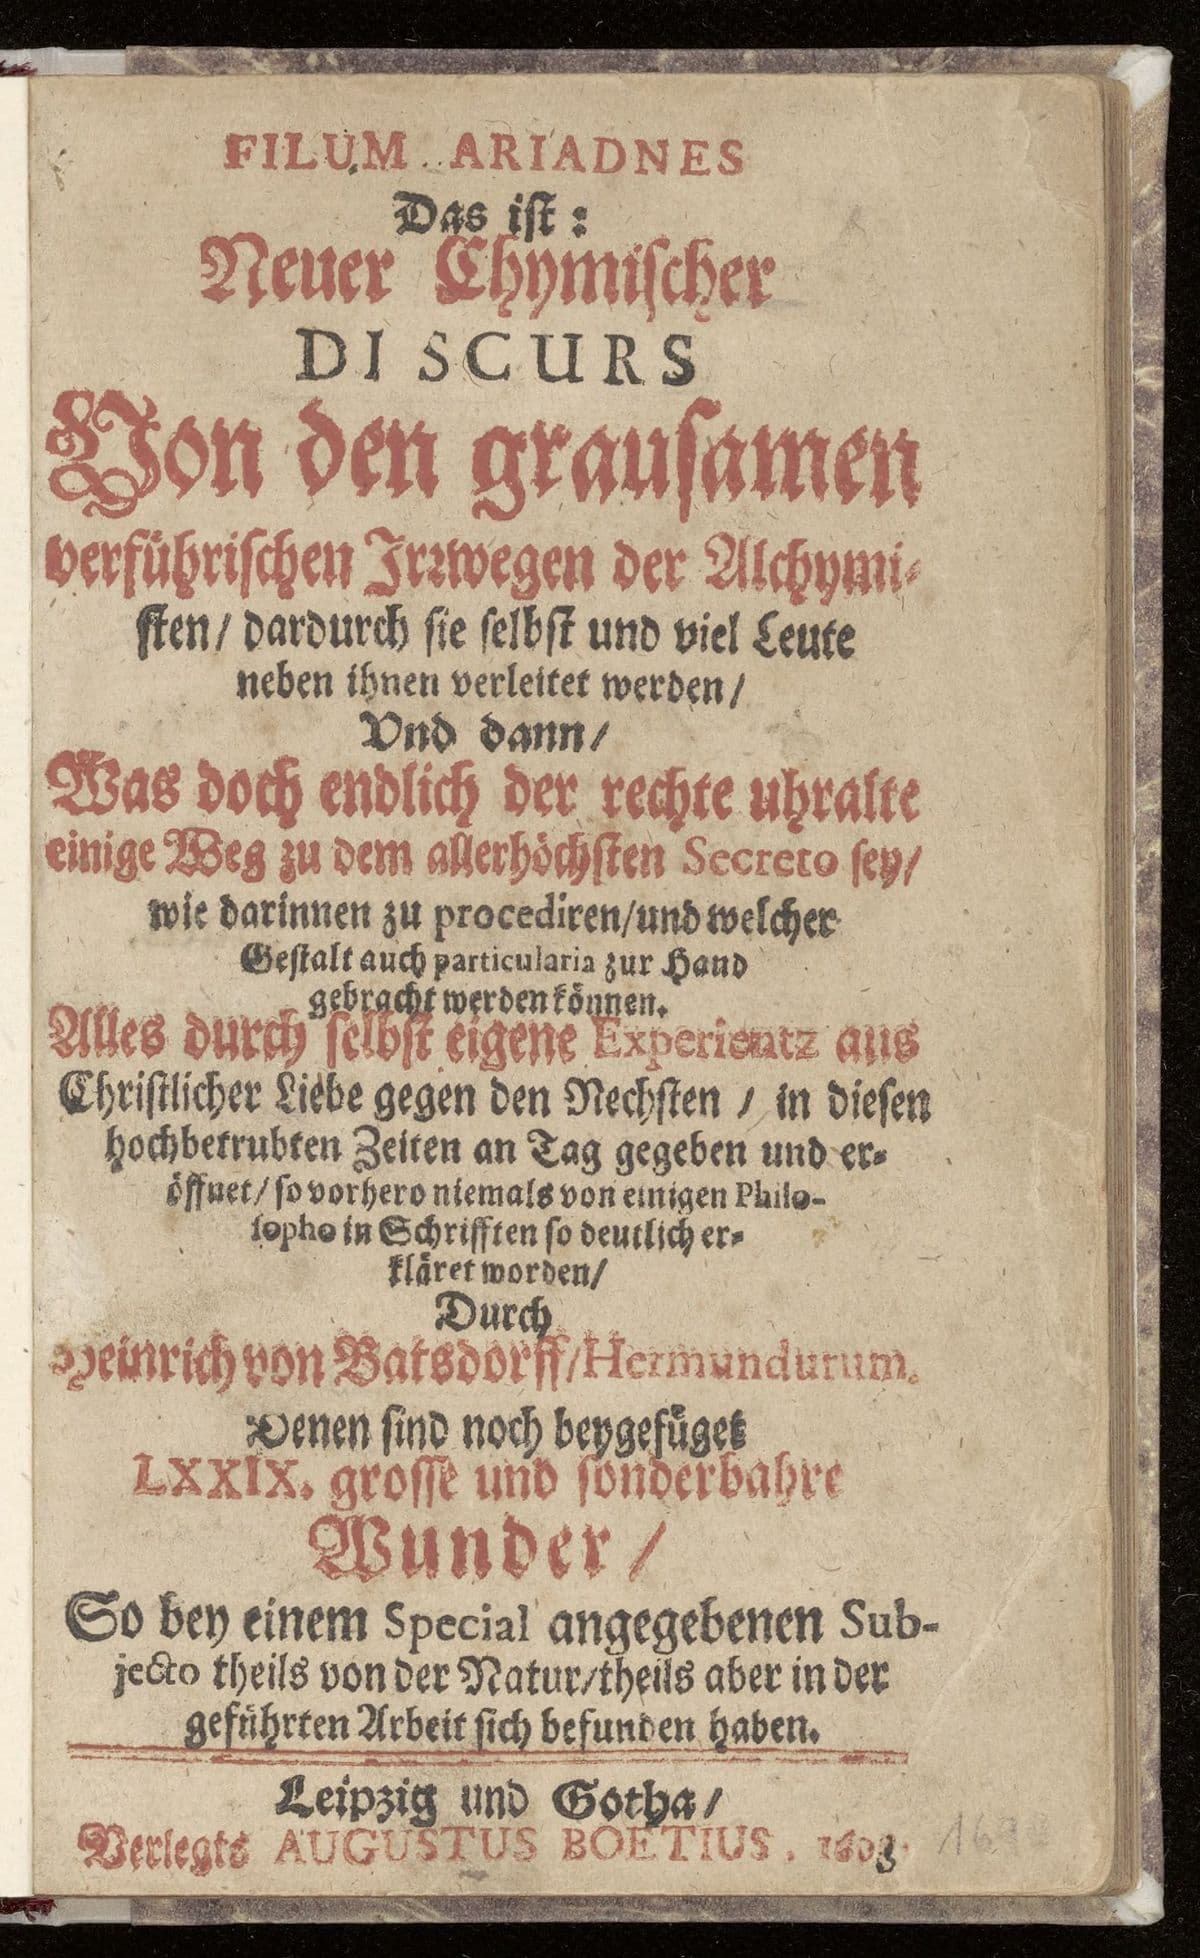 FILUM ARIADNES
Das ist:
Neuer Chymischer
DISCURS
Von den grausamen
verführischen Irrwegen der Alchymi-
sten/ dardurch sie selbst und viel Leute
neben ihnen verleitet werden/
Vnd dann/
Was doch endlich der rechte uhralte
einige Weg zu dem allerhöchsten Secreto sey/
wie darinnen zu procediren/und welcher
Gestalt auch particularia zur Hand
gebracht werden können.
Alles durch selbst eigene Experientz aus
Christlicher Liebe gegen den Nechsten / in diesen
hochbetrubten Zeiten an Tag gegeben und er-
öffnet/ so vorhero niemals von einigen Philo-
sopho in Schrifften so deutlich er-
kläret worden/
Durch
Heinrich von Batsdorff/Hermundurum.
Denen sind noch beygefüget
LXXIX. grosse und sonderbahre
Wunder/
So bey einem Special angegebenen Sub-
jecto theils von der Natur/theils aber in der
geführten Arbeit sich befunden haben.
Leipzig und Gotha/
Verlegts AUGUSTUS BOETIUS.